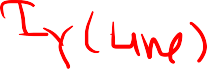 Iy (Line)